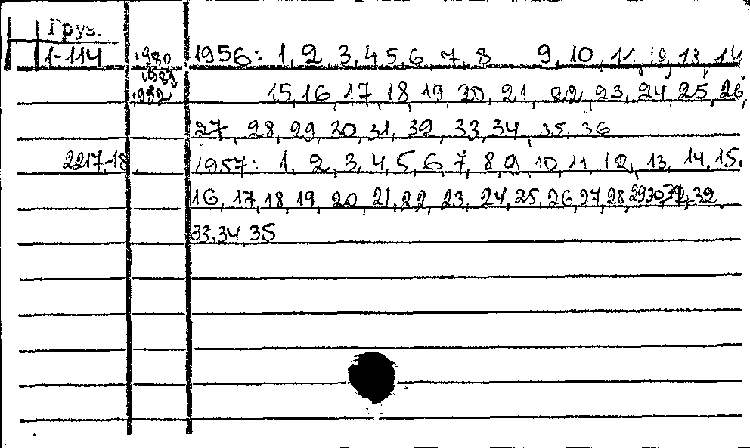 Груз.
1-114 1980 1956: 1, 2, 3, 4, 5, 6, 7, 8 9, 10, 11, 12, 13, 14
1981
1982 15, 16, 17, 18, 19, 20, 21, 22, 23, 24, 25, 26,
27, 28, 29, 30, 31, 32, 33, 34, 35, 36
2217-18 1957: 1, 2, 3, 4, 5, 6, 7, 8, 9, 10, 11, 12, 13, 14, 15,
16, 17, 18, 19, 20, 21, 22, 23, 24, 25, 26, 27, 28, 29, 30, 31, 32
33, 34, 35